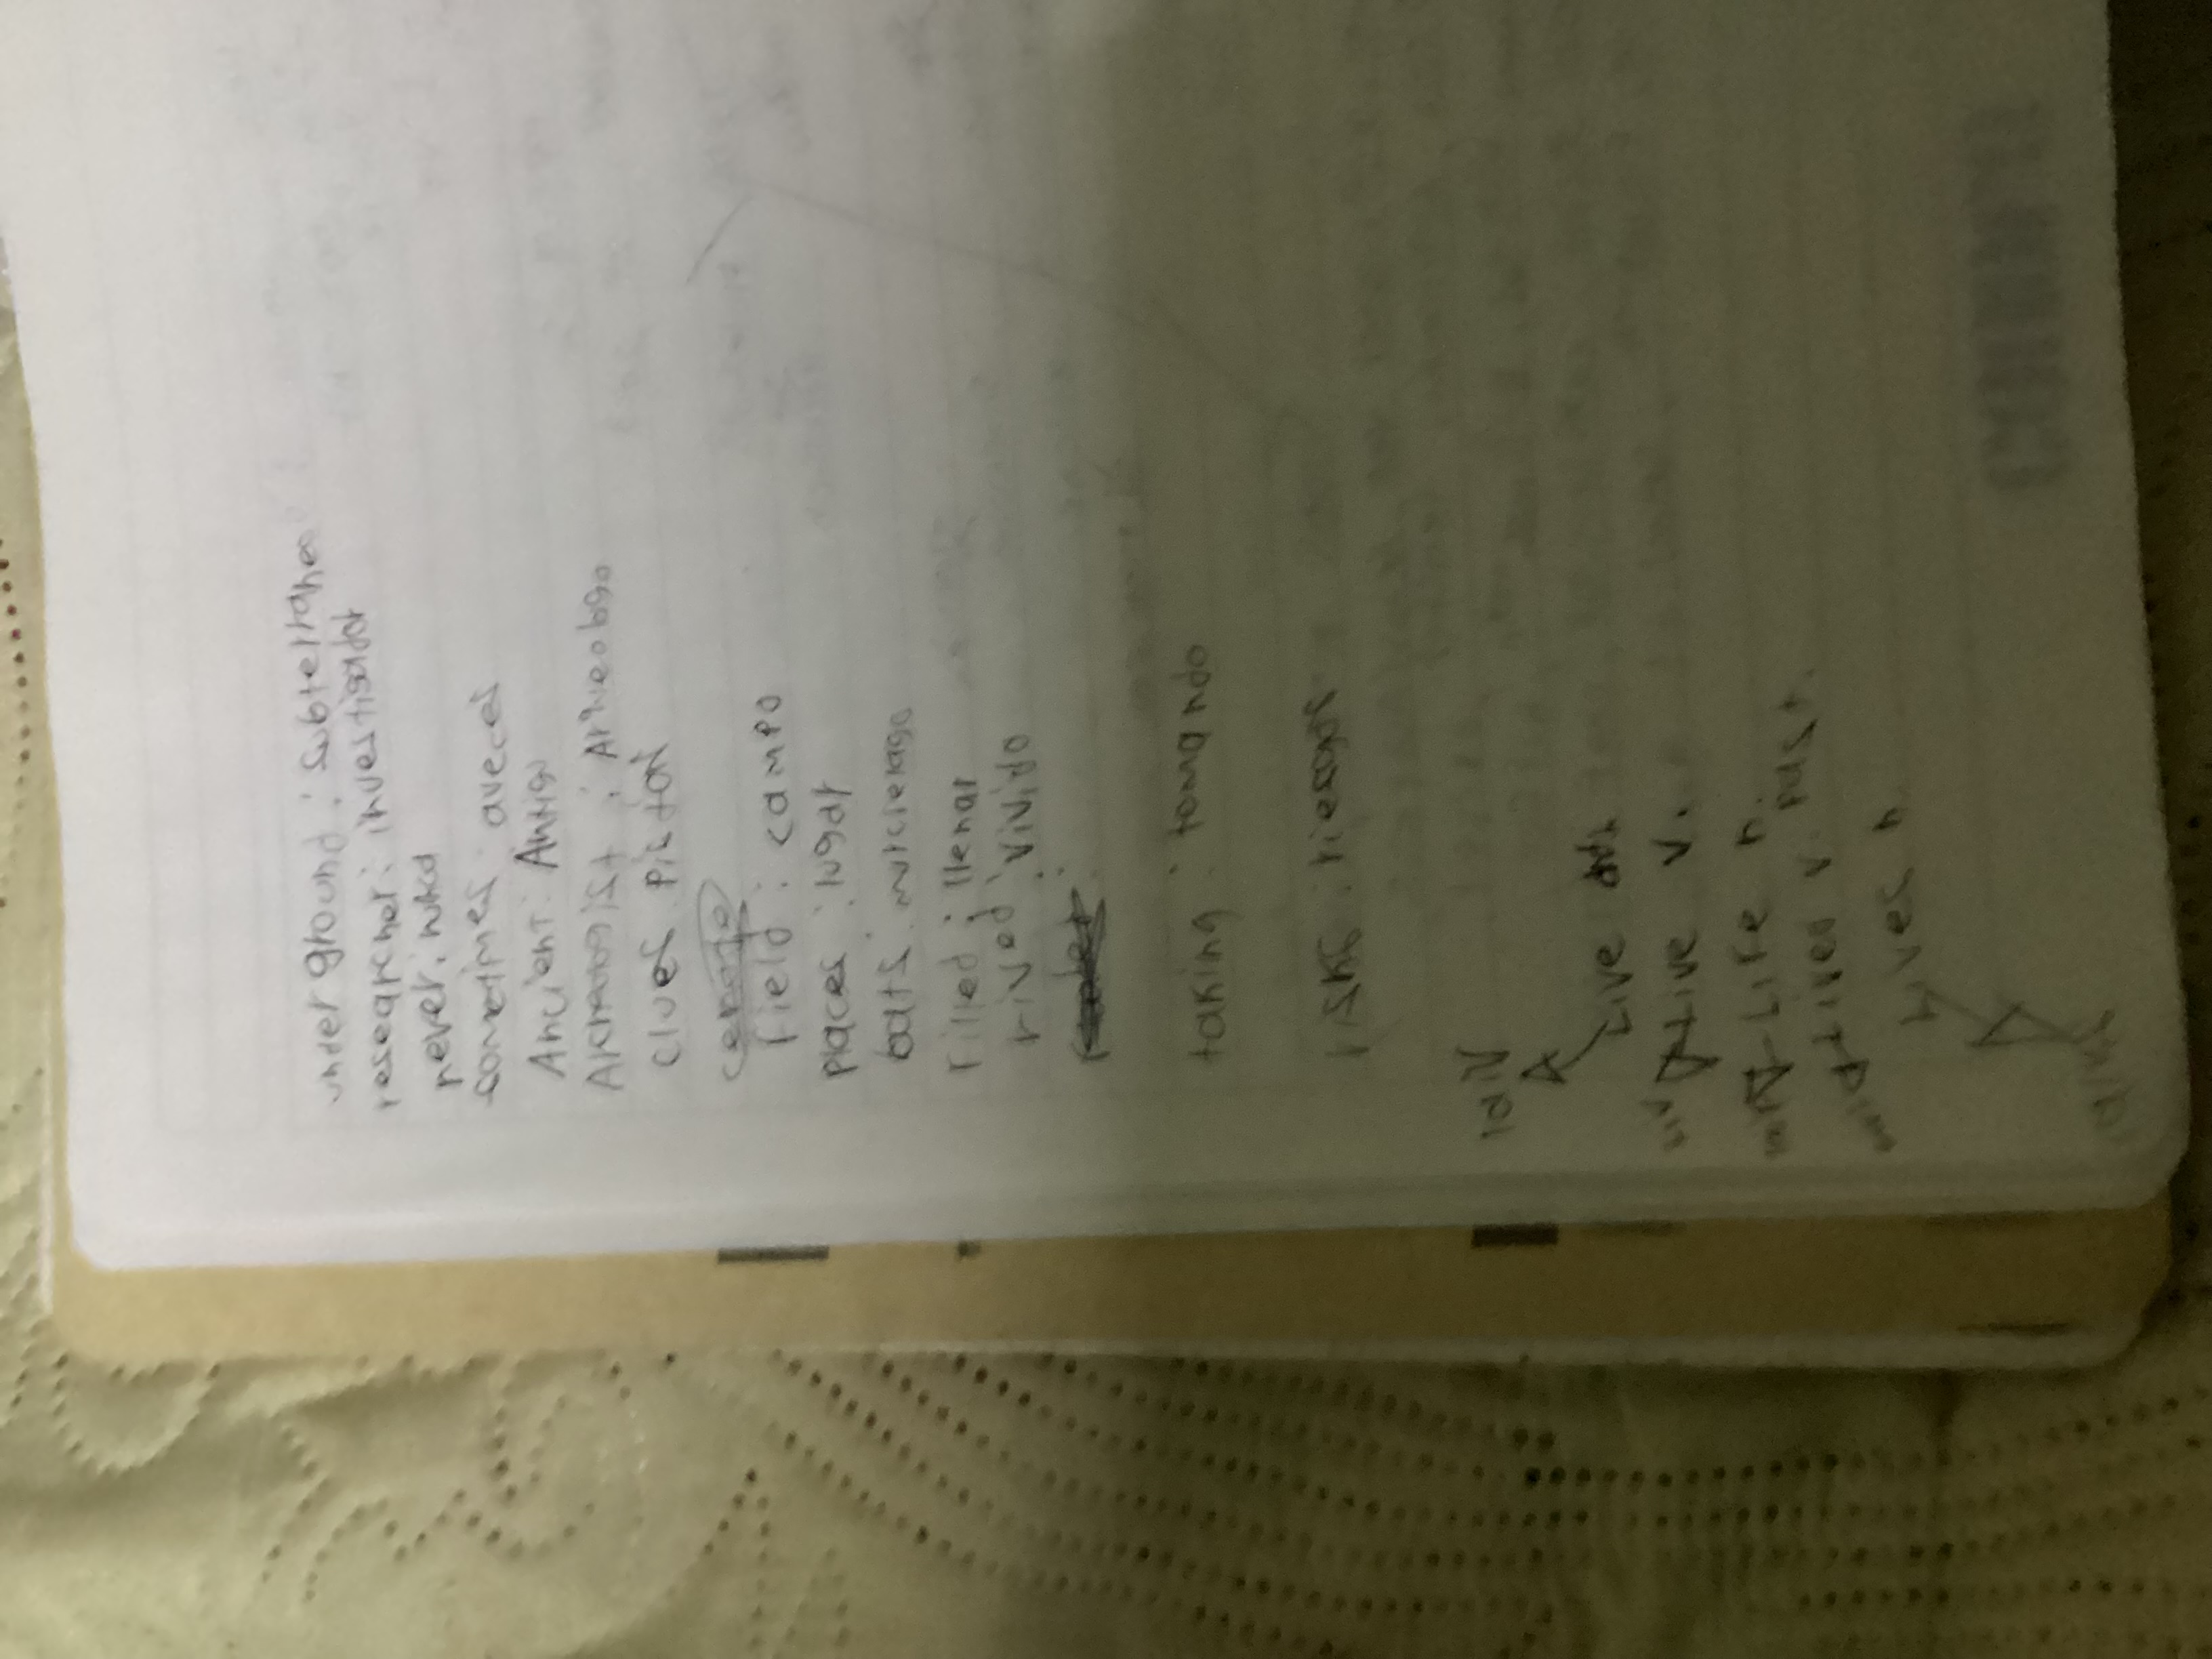 under ground : subterraneo
researcher : investigador
never : nunca
sometimes : aveces
Ancient : Antiguo
: Arqueologo
clues : pistas
field : campo
places : lugar
bats : murcielago
filled : llenar
lived : vivido
taking : tomando
risks : riesgos
laiv
Live adj.
liv Live v.
laif Life n.
livd Lived v. past.
Lives n.
laivs